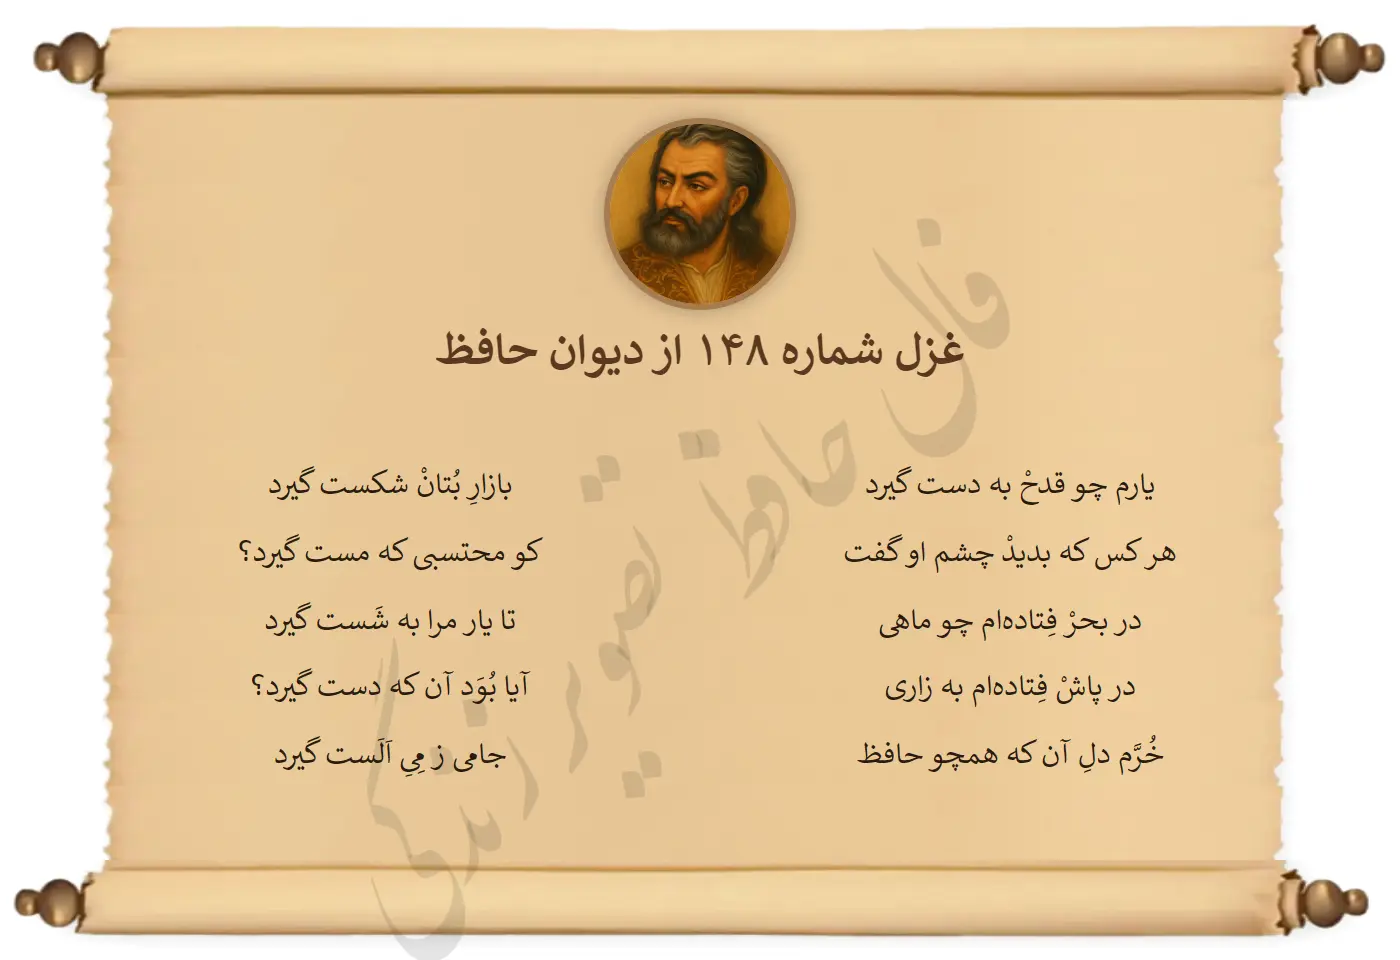 غزل شماره ۱۴۸ از دیوان حافظ
یارم چو قدحْ به دست گیرد
بازارِ بُتانْ شکست گیرد
هر کس که بدیدْ چشم او گفت
کو محتسبی که مست گیرد؟
در بحرْ فِتاده‌ام چو ماهی
تا یار مرا به شَست گیرد
در پاشْ فِتاده‌ام به زاری
آیا بُوَد آن که دست گیرد؟
خُرَّم دلِ آن که همچو حافظ
جامی ز مِیِ اَلَست گیرد
فال حافظ تصویر زندگی